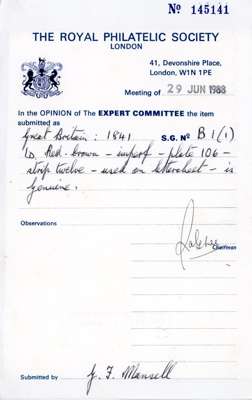 Nº 145141
THE ROYAL PHILATELIC SOCIETY
LONDON
41, Devonshire Place,
London, W1N 1PE
Meeting of 29 JUN 1988
In the OPINION of The EXPERT COMMITTEE the item
submitted as
Great Britain: 1841 S.G. Nº B1(1)
1d Red-brown - imperf - plate 106 -
strip twelve - used on - is
genuine.
Observations
Chairman
Submitted by J. F. Mansell